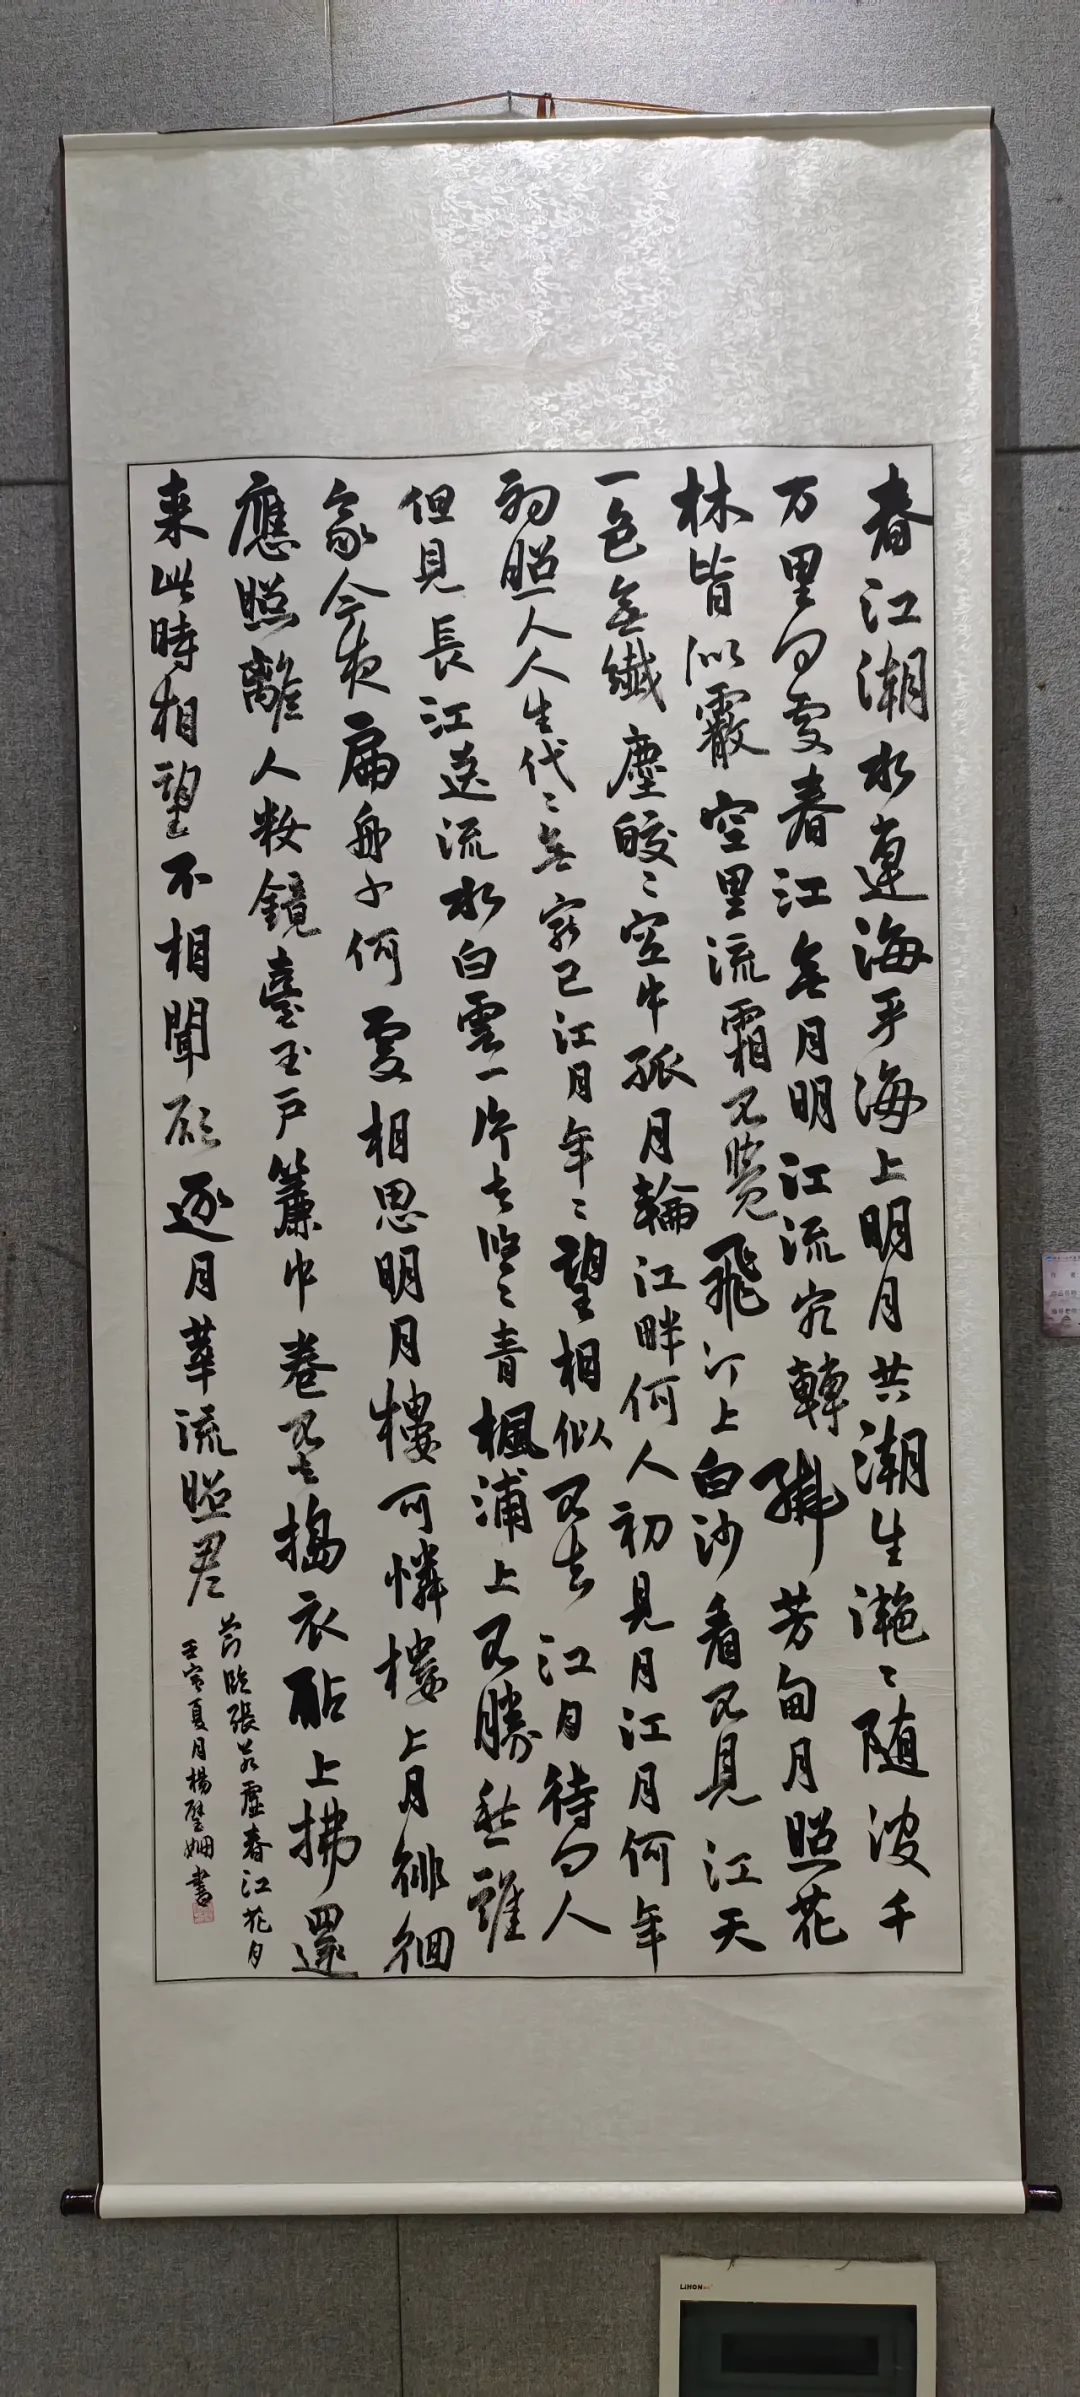 春江潮水連海平海上明月共潮生灔〻随波千
万里何處春江無月明江流宛轉繞芳甸月照花
林皆似霰空里流霜不覺飛汀上白沙看不見江天
一色無纖塵皎〻空中孤月輪江畔何人初見月江月何年
初照人人生代〻無窮已江月年〻望相似不知江月待何人
但見長江送流水白雲一片去悠〻青楓浦上不勝愁誰
家今夜扁舟子何處相思明月樓可憐樓上月徘徊
應照離人籹鏡臺玉戶簾中卷不去搗衣砧上拂還
来此時相望不相聞願逐月華流照君
節臨張若虛春江花月
壬寅夏月楊姍書
LIHON